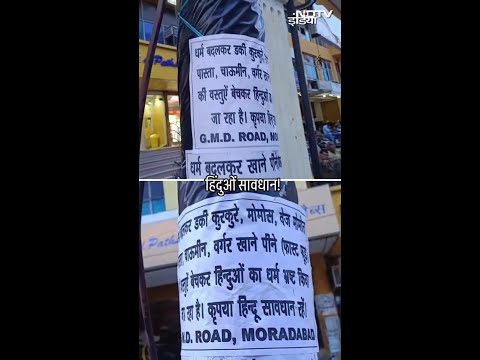 NDTV
इंडिया
धर्म बदलकर डर्की कुरकुरे
पास्ता, चाऊमीन, वर्गर
की वस्तुऐं बेचकर हिन्दुओं
जा रहा है। कृपया
G.M.D. ROAD,
धर्म बदलकर खाने पीने
हिंदुओं सावधान!
डर्की कुरकुरे, मोमोस, वेज
चाऊमीन, वर्गर खाने पीने (फास्ट
बेचकर हिन्दुओं का धर्म भ्रष्ट किया
रहा है। कृपया हिन्दू सावधान रहें।
ROAD, MORADABAD